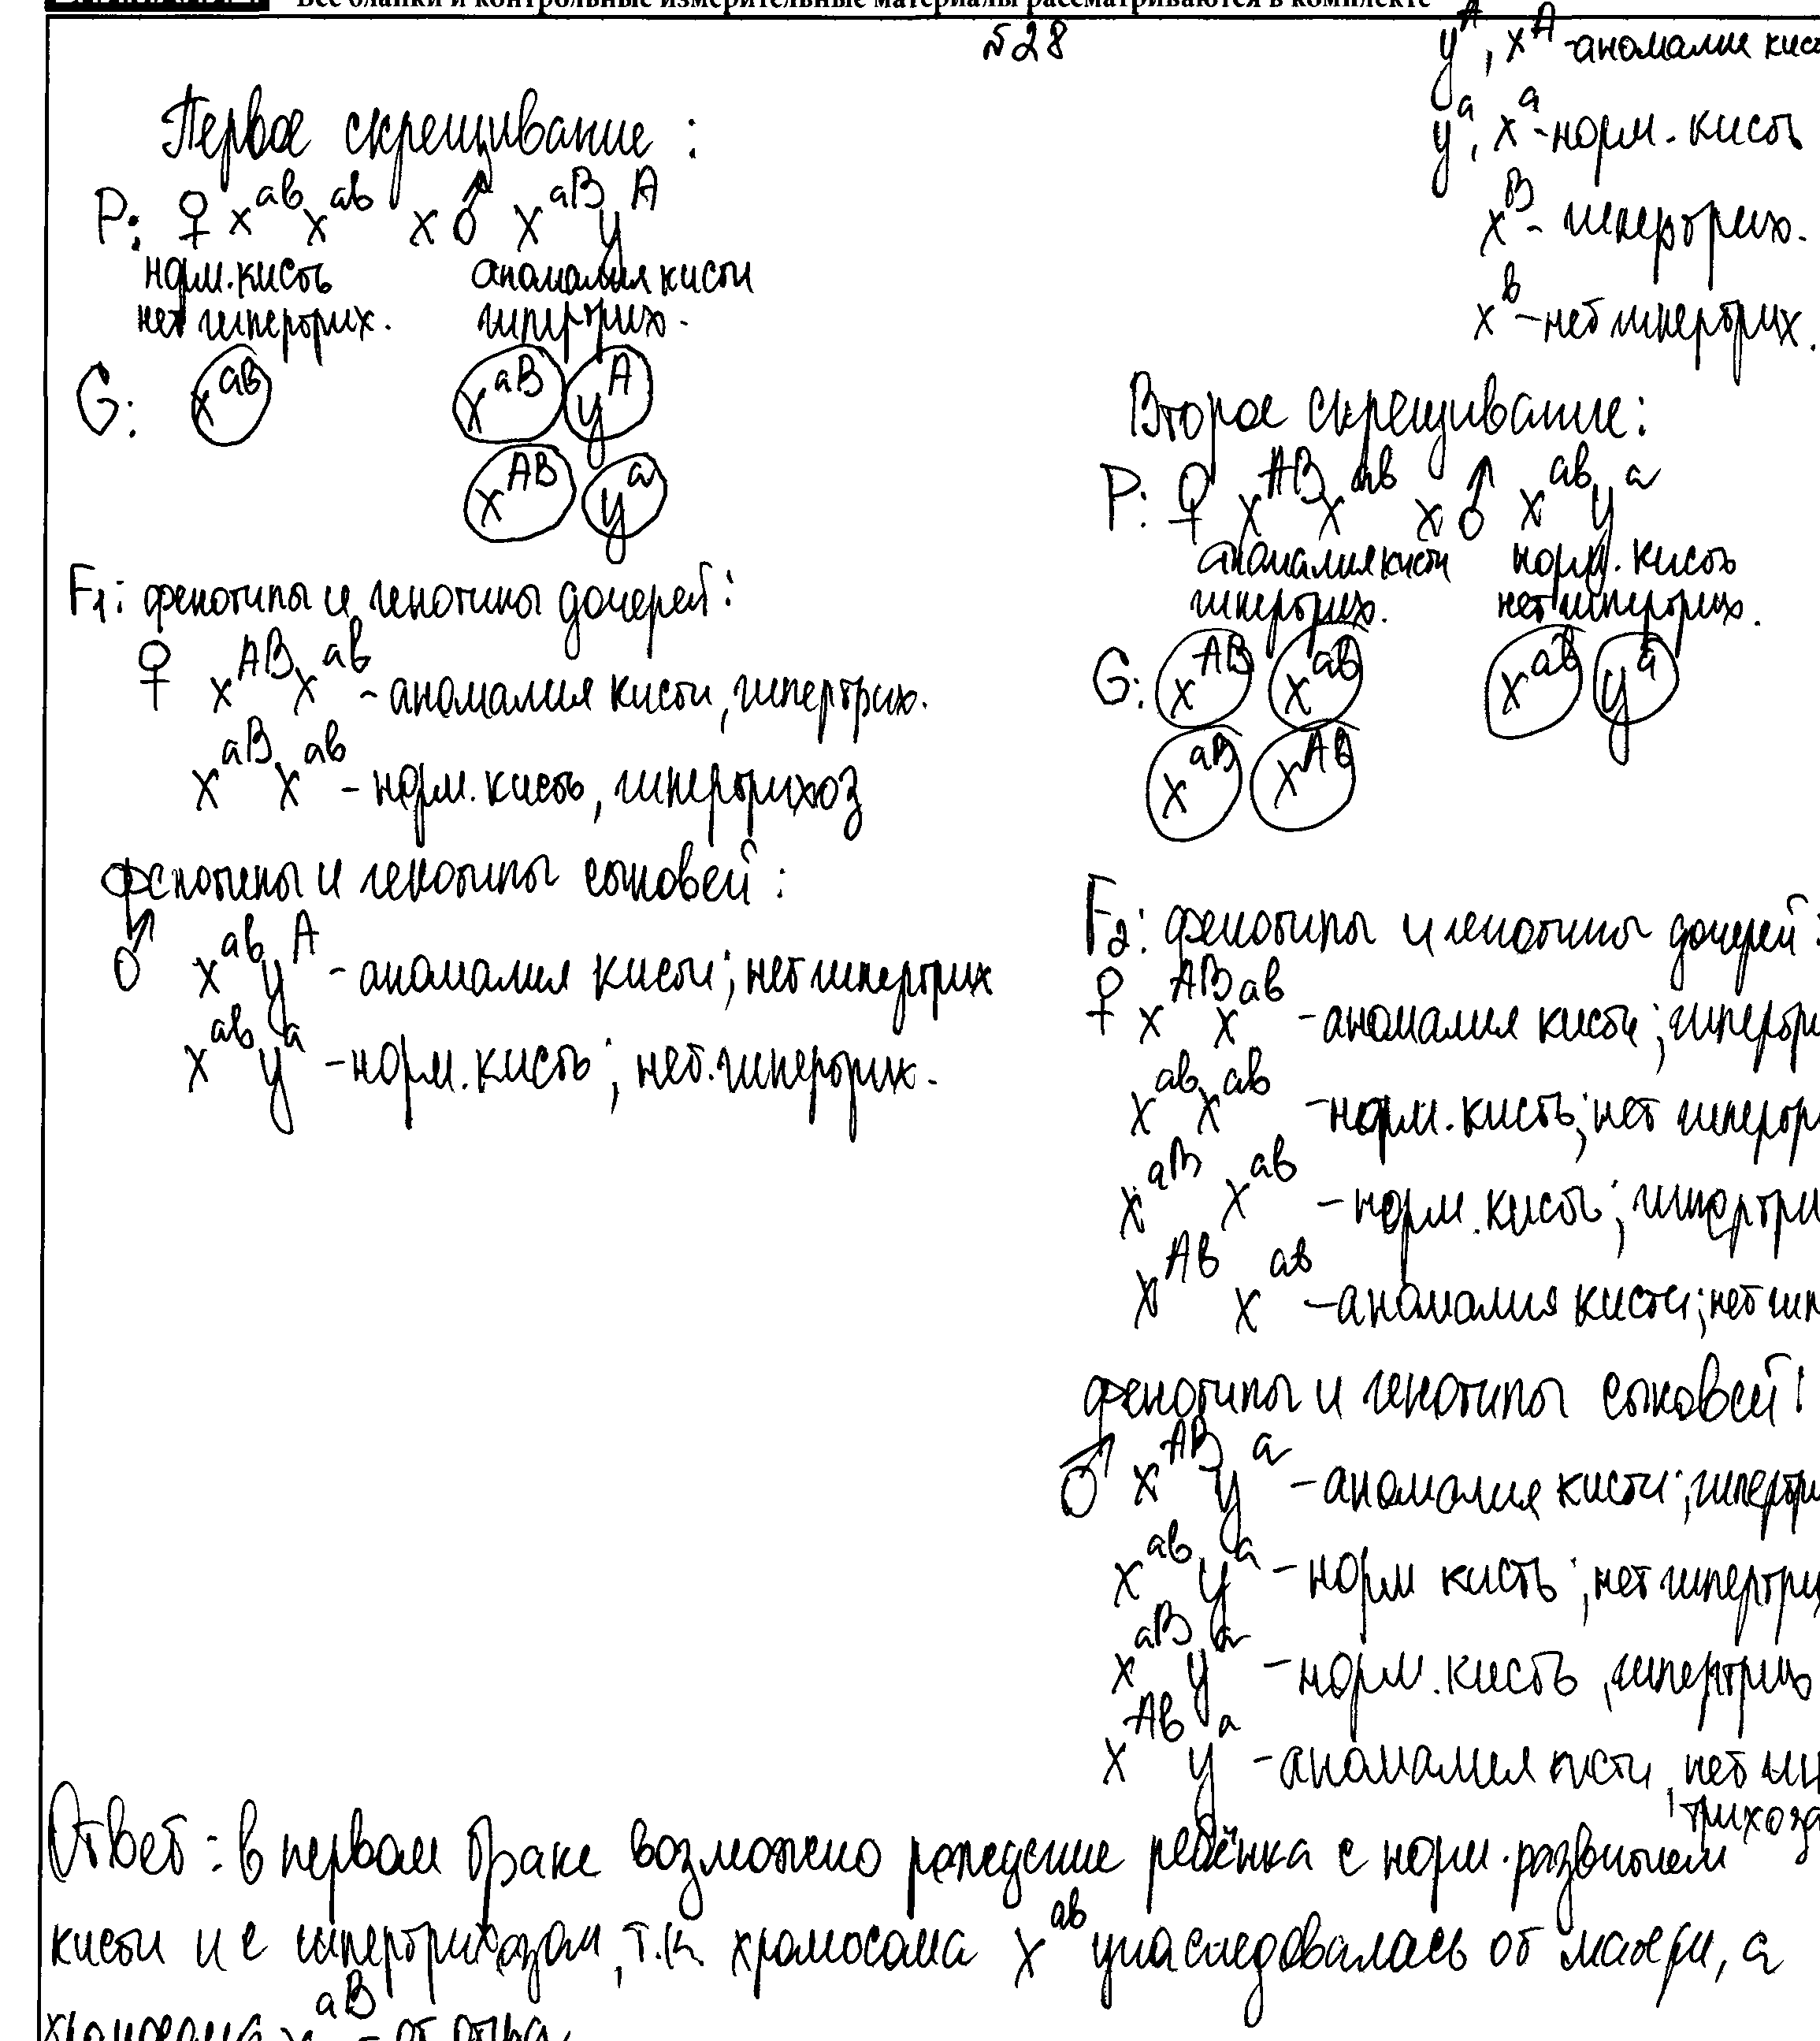 Все бланки и контрольные измерительные материалы рассматриваются в комплекте
№28
y^A, x^A - аномалия кис
y^a, x^a - норм. кисть
x^B - гипертрих.
x^b - нет гипертрих.
Первое скрещивание:
P: ♀ x^ab x^ab x ♂ x^aB y^A
норм. кисть аномалия кисти
нет гипертрих. гипертрих.
G: x^ab x^aB y^A
x^AB y^a
F1: фенотипы и генотипы дочерей:
♀ x^AB x^ab - аномалия кисти, гипертрих.
x^aB x^ab - норм. кисть, гипертрихоз
фенотипы и генотипы сыновей:
♂ x^ab y^A - аномалия кисти; нет гипертрих
x^ab y^a - норм. кисть; нет. гипертрих.
Второе скрещивание:
P: ♀ x^AB x^ab x ♂ x^ab y^a
аномалия кисти норм. кисть
гипертрих. нет гипертрих.
G: x^AB x^ab x^ab y^a
x^aB x^Ab
F2: фенотипы и генотипы дочерей:
♀ x^AB x^ab - аномалия кисти; гипертри
x^ab x^ab - норм. кисть; нет гипертр
x^aB x^ab - норм. кисть; гипертри
x^Ab x^ab - аномалия кисти; нет гип
фенотипы и генотипы сыновей:
♂ x^AB y^a - аномалия кисти; гипертри
x^ab y^a - норм кисть; нет гипертри
x^aB y^a - норм. кисть, гипертрих
x^Ab y^a - аномалия кисти, нет ги
трихоза
Ответ: в первом браке возможно рождение ребёнка с норм. развитием
кисти и с гипертрихозом, т.к. хромосома x^ab унаследовалась от матери, а
хромосома x^aB - от отца.